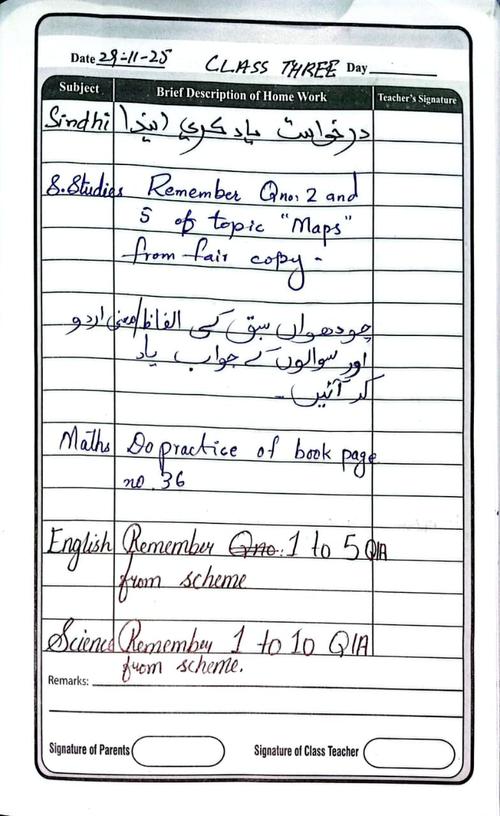 Date 29-11-25 CLASS THREE Day
Subject Brief Description of Home Work Teacher's Signature
Sindhi درخواست ياد ڪري ايندا
S.Studies Remember Qno: 2 and
5 of topic "Maps"
from fair copy.
اردو چودھواں سبق کے الفاظ/معنی
اور سوالوں کے جواب یاد
کر آئیں۔
Maths Do practice of book page
no. 36
English Remember Qno: 1 to 5 Q/A
from scheme
Science Remember 1 to 10 Q/A
from scheme.
Remarks:
Signature of Parents Signature of Class Teacher